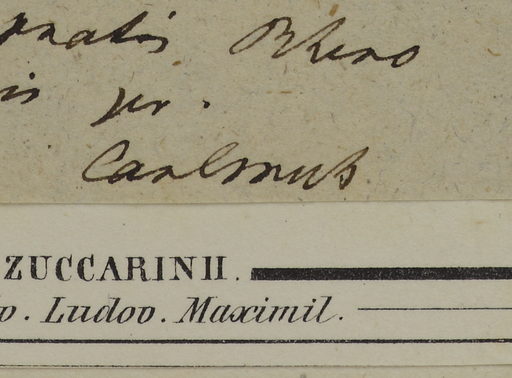 pratis Rheno
is pr.
Carlsruh
ZUCCARINII.
o. Ludov. Maximil.